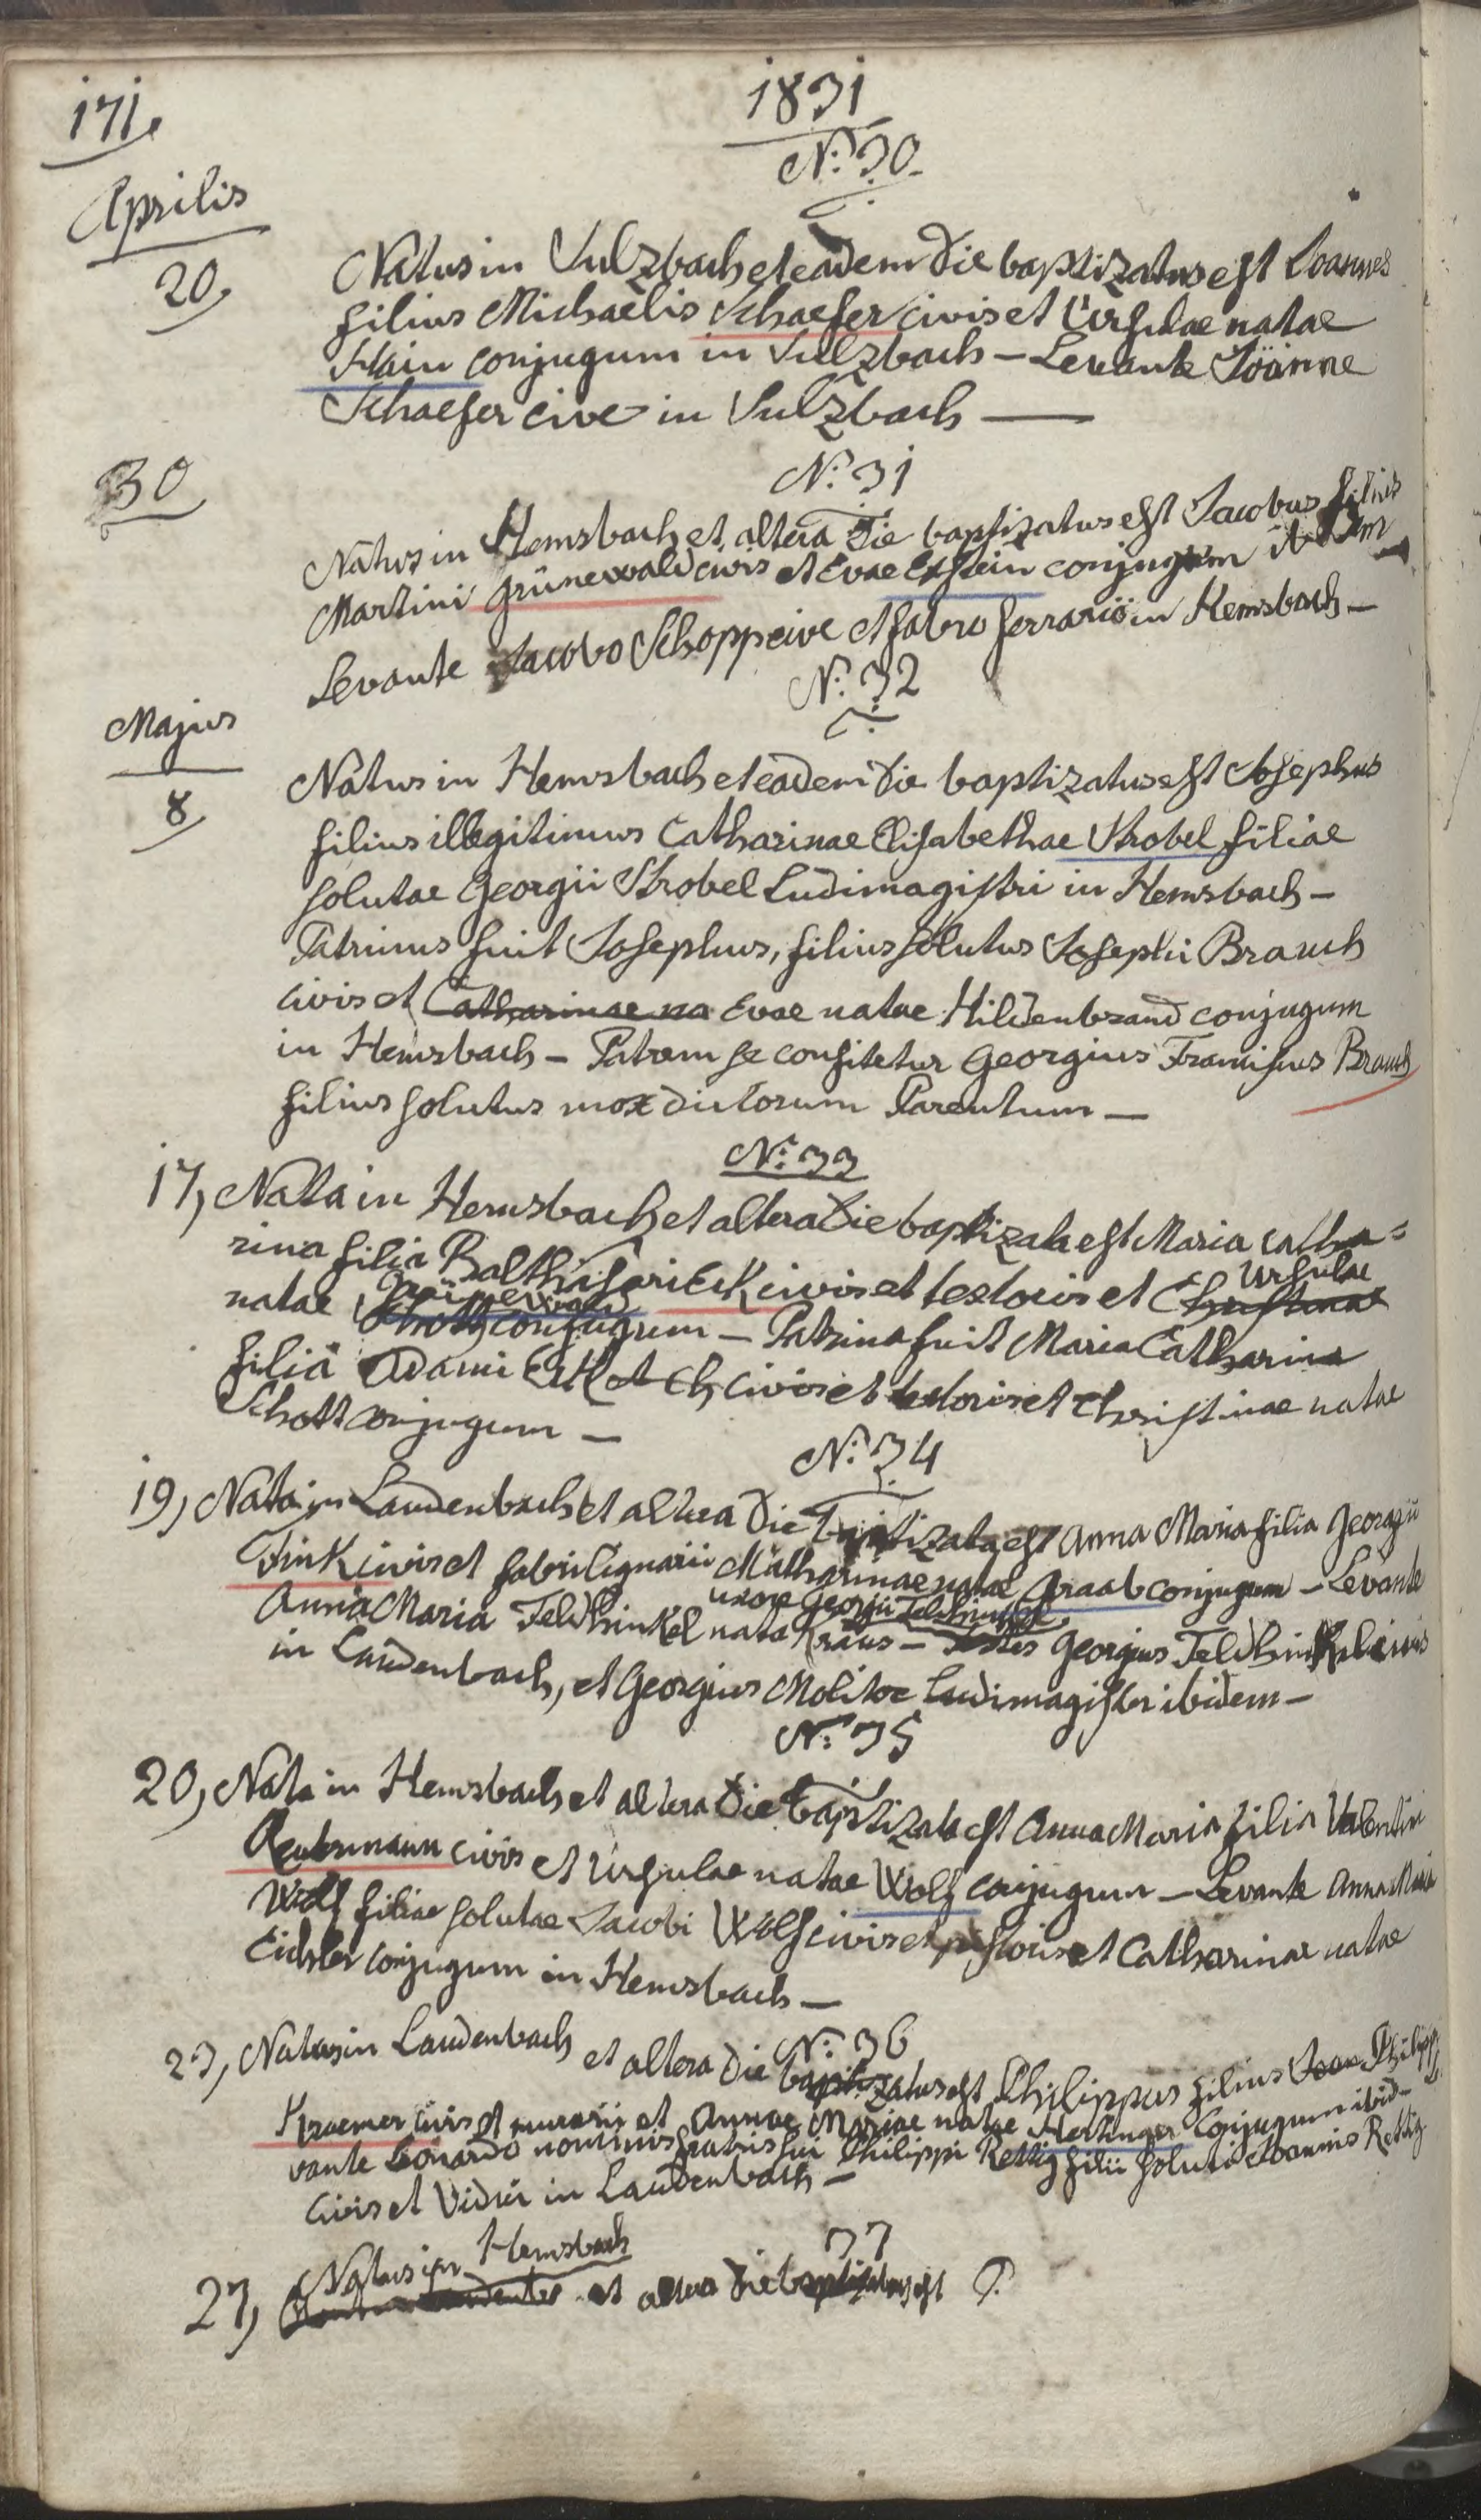 171.
1831
Aprilis
N: 30.
20.
Natus in Sulzbach et eadem die baptizatus est Joannes
filius Michaelis Schaefer civis et Ursulae natae
Hain conjugum in Sulzbach – Levante Joanne
Schaefer cive in Sulzbach —
30
N: 31
Natus in Hemsbach et altera die baptizatus est Jacobus filius
Martini Grünewald civis et Evae Exstein conjugum ibidem –
Levante Jacobo Schopp cive et fabro ferrario in Hemsbach –
N: 32
Majus
8
Natus in Hemsbach et eadem die baptizatus est Josephus
filius illegitimus Catharinae Elisabethae Strobel filiae
solutae Georgii Strobel Ludimagistri in Hemsbach –
Patrinus fuit Josephus, filius solutus Josephi Brauch
civis et Catharinae na Evae natae Hildenbrand conjugum
in Hemsbach – Patrem se confitetur Georgius Franciscus Brauch
filius solutus mox dictorum Parentum –
N: 33
17, Nata in Hemsbach et altera die baptizata est Maria Catha=
rina filia Balthasari Eck civis et textoris et Christinae Ursulae
natae Schott Grünewald conjugum – Patrina fuit Maria Catharina
filia Adami Eck et Ch civis et textoris et Christinae natae
Schott conjugum –
N: 34
19, Nata in Laudenbach et altera die baptizata est Anna Maria filia Georgii
Fink civis et fabri lignarii Catharinae natae Graab conjugum – Levante
uxore Georgii Feldhinkel
Anna Maria Feldhinkel nata Kraus – Testes Georgius Feldhinkel civis
in Laudenbach, et Georgius Molitor Ludimagister ibidem –
N: 35
20, Nata in Hemsbach et altera die baptizata est Anna Maria filia Valentini
civis et Ursulae natae Wolf conjugum – Levante Anna Maria
Wolf filiae solutae Jacobi Wolf civis et pistoris et Catharinae natae
Eichler conjugum in Hemsbach –
N: 36
23, Natus in Laudenbach et altera die baptizatus est Philippus filius Joan Philippi
Kraemer civis et murarii et Annae Mariae natae Hertinger conjugum ibid–
vante Leonardo nominis fratris sui Philippi Rettig filii soluti Joannis Rettig
civis et vidui in Laudenbach –
37
Natus in Hemsbach
27, et altera die baptizatus est P.